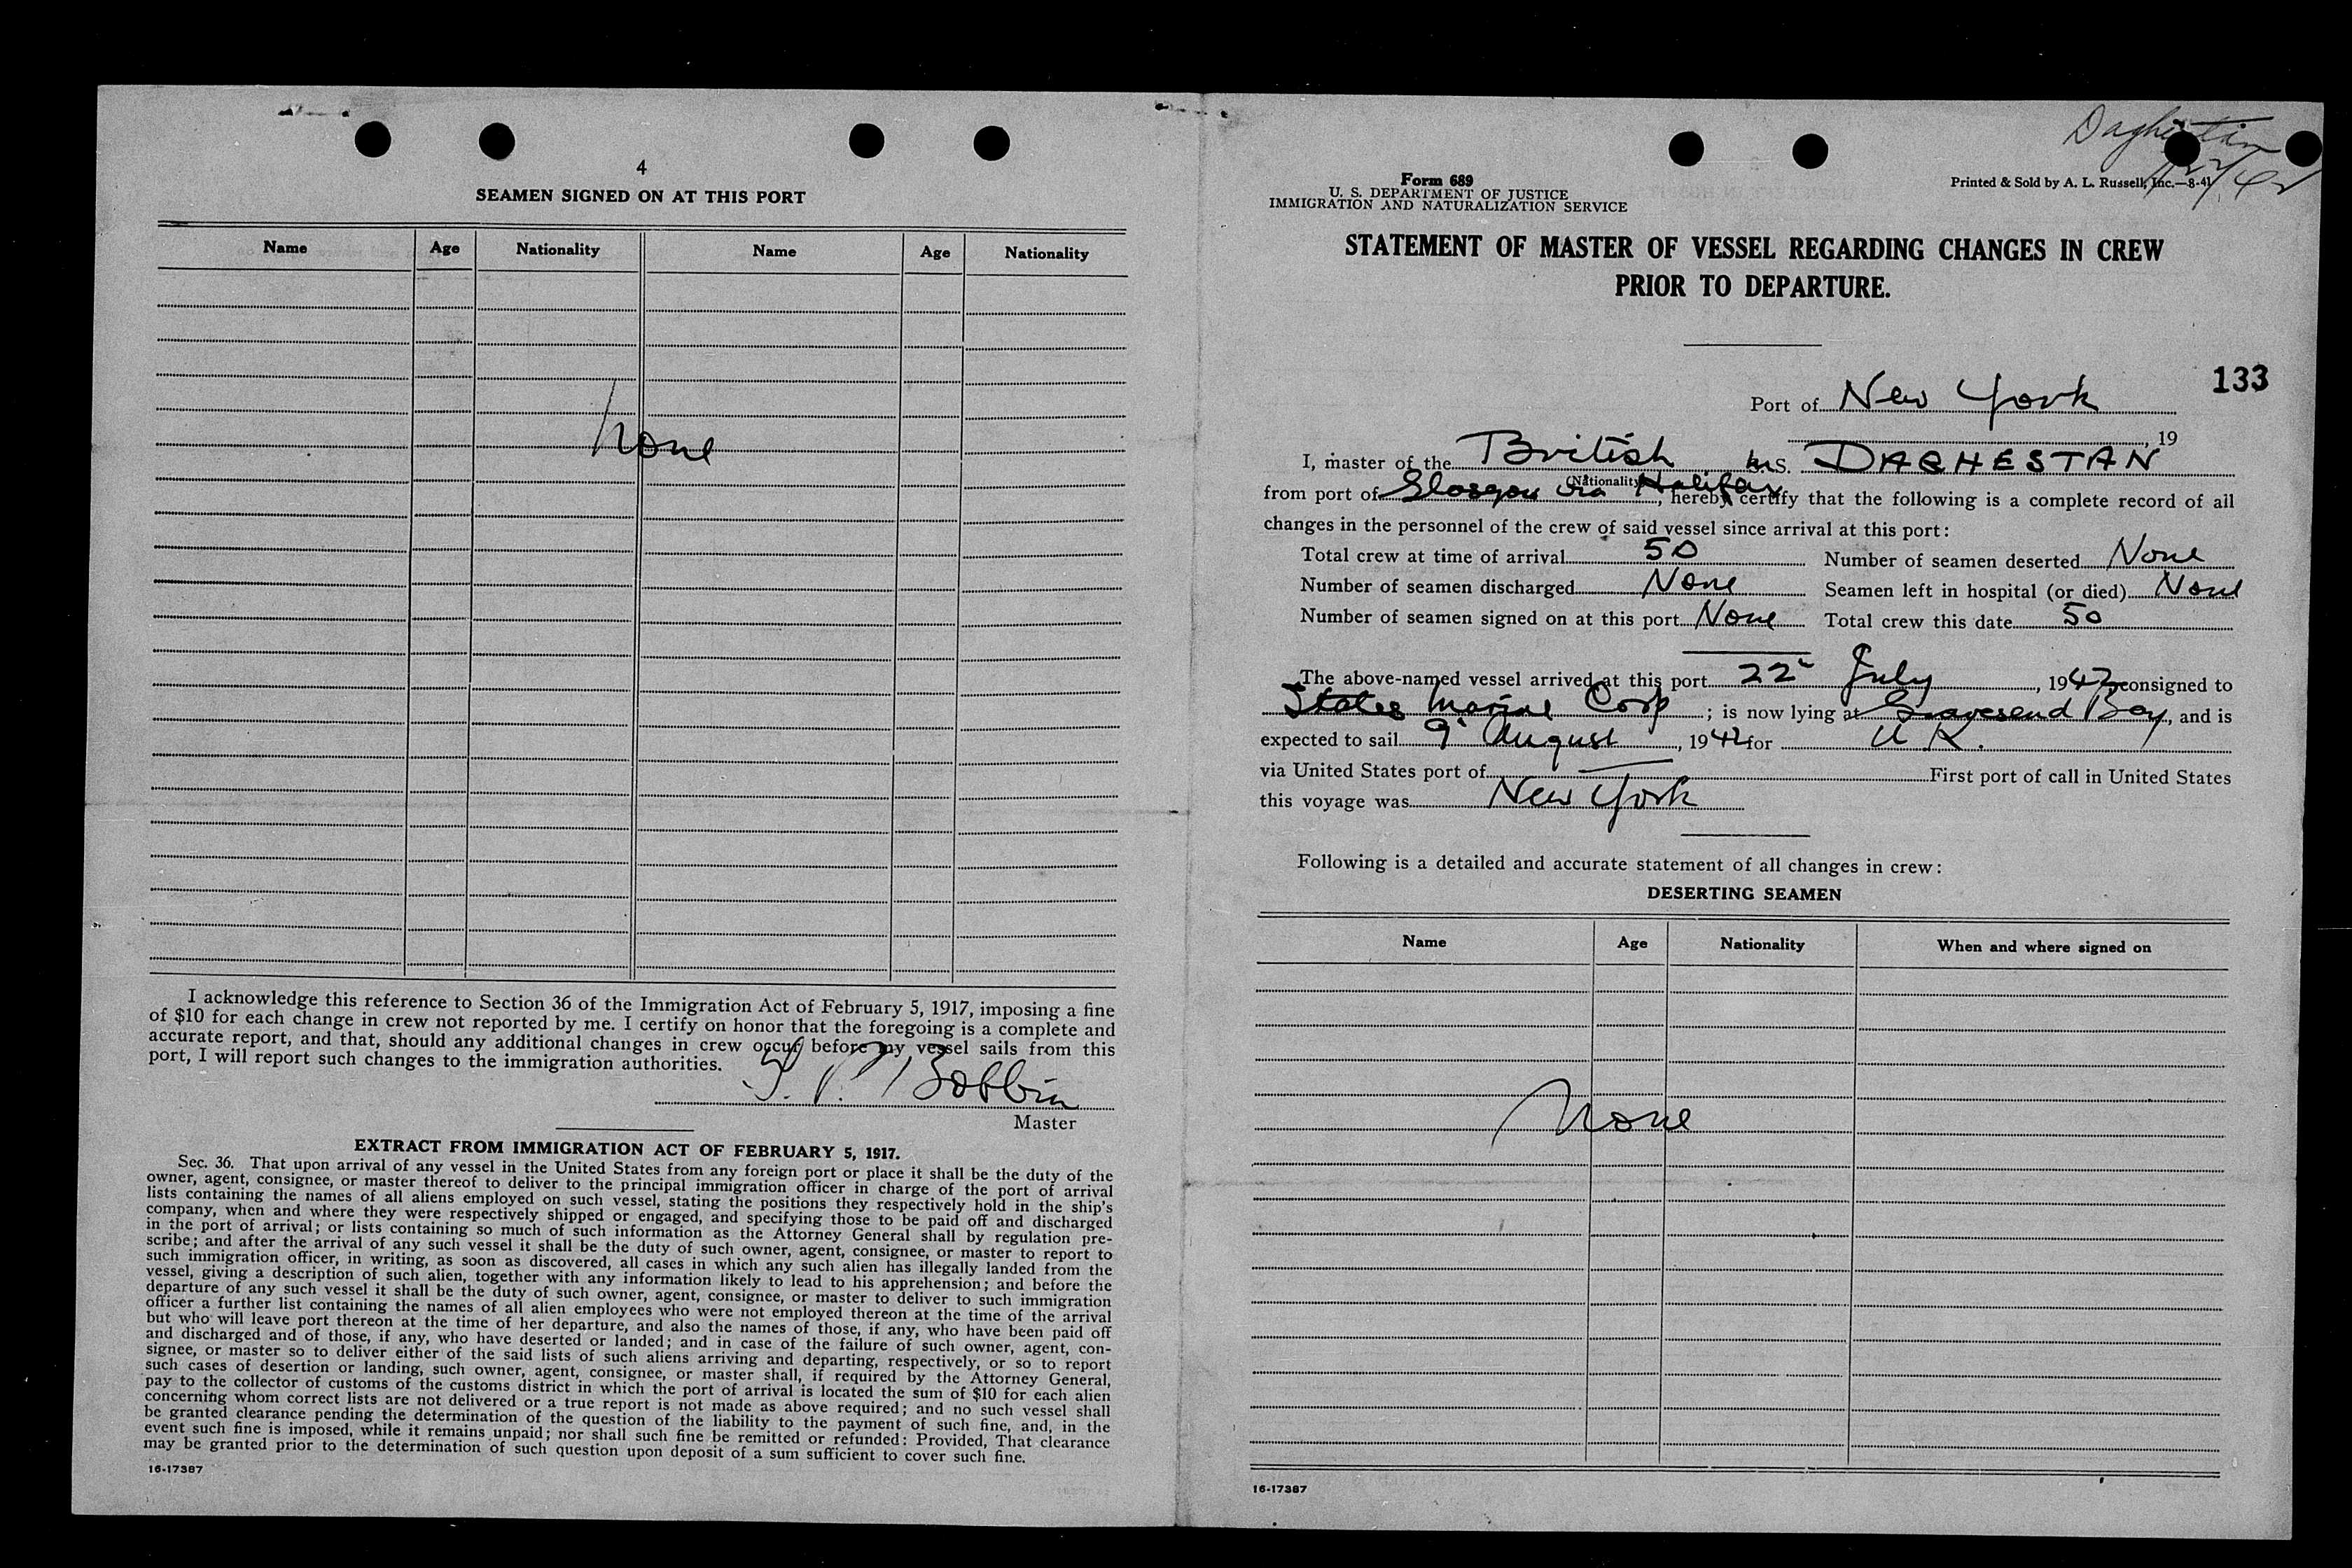 4
SEAMEN SIGNED ON AT THIS PORT
Name Age Nationality Name Age Nationality
None
I acknowledge this reference to Section 36 of the Immigration Act of February 5, 1917, imposing a fine
of $10 for each change in crew not reported by me. I certify on honor that the foregoing is a complete and
accurate report, and that, should any additional changes in crew occur before my vessel sails from this
port, I will report such changes to the immigration authorities.
Bobbin
Master
EXTRACT FROM IMMIGRATION ACT OF FEBRUARY 5, 1917.
Sec. 36. That upon arrival of any vessel in the United States from any foreign port or place it shall be the duty of the
owner, agent, consignee, or master thereof to deliver to the principal immigration officer in charge of the port of arrival
lists containing the names of all aliens employed on such vessel, stating the positions they respectively hold in the ship's
company, when and where they were respectively shipped or engaged, and specifying those to be paid off and discharged
in the port of arrival; or lists containing so much of such information as the Attorney General shall by regulation pre-
scribe; and after the arrival of any such vessel it shall be the duty of such owner, agent, consignee, or master to report to
such immigration officer, in writing, as soon as discovered, all cases in which any such alien has illegally landed from the
vessel, giving a description of such alien, together with any information likely to lead to his apprehension; and before the
departure of any such vessel it shall be the duty of such owner, agent, consignee, or master to deliver to such immigration
officer a further list containing the names of all alien employees who were not employed thereon at the time of the arrival
but who will leave port thereon at the time of her departure, and also the names of those, if any, who have been paid off
and discharged and of those, if any, who have deserted or landed; and in case of the failure of such owner, agent, con-
signee, or master so to deliver either of the said lists of such aliens arriving and departing, respectively, or so to report
such cases of desertion or landing, such owner, agent, consignee, or master shall, if required by the Attorney General,
pay to the collector of customs of the customs district in which the port of arrival is located the sum of $10 for each alien
concerning whom correct lists are not delivered or a true report is not made as above required; and no such vessel shall
be granted clearance pending the determination of the question of the liability to the payment of such fine, and, in the
event such fine is imposed, while it remains unpaid; nor shall such fine be remitted or refunded: Provided, That clearance
may be granted prior to the determination of such question upon deposit of a sum sufficient to cover such fine.
16-17387
Daghestan
Form 689
U. S. DEPARTMENT OF JUSTICE
IMMIGRATION AND NATURALIZATION SERVICE
Printed & Sold by A. L. Russell, Inc.—8-41
STATEMENT OF MASTER OF VESSEL REGARDING CHANGES IN CREW
PRIOR TO DEPARTURE.
133
Port of New York
, 19
I, master of the British S. DAGHESTAN
(Nationality)
from port of Glasgow via Halifax, hereby certify that the following is a complete record of all
changes in the personnel of the crew of said vessel since arrival at this port:
Total crew at time of arrival 50 Number of seamen deserted None
Number of seamen discharged None Seamen left in hospital (or died) None
Number of seamen signed on at this port None Total crew this date 50
The above-named vessel arrived at this port 22 July, 1942, consigned to
States Marine Corp; is now lying at Gravesend Bay, and is
expected to sail 9 August, 1942 for U K.
via United States port of — First port of call in United States
this voyage was New York
Following is a detailed and accurate statement of all changes in crew:
DESERTING SEAMEN
Name Age Nationality When and where signed on
None
16-17387